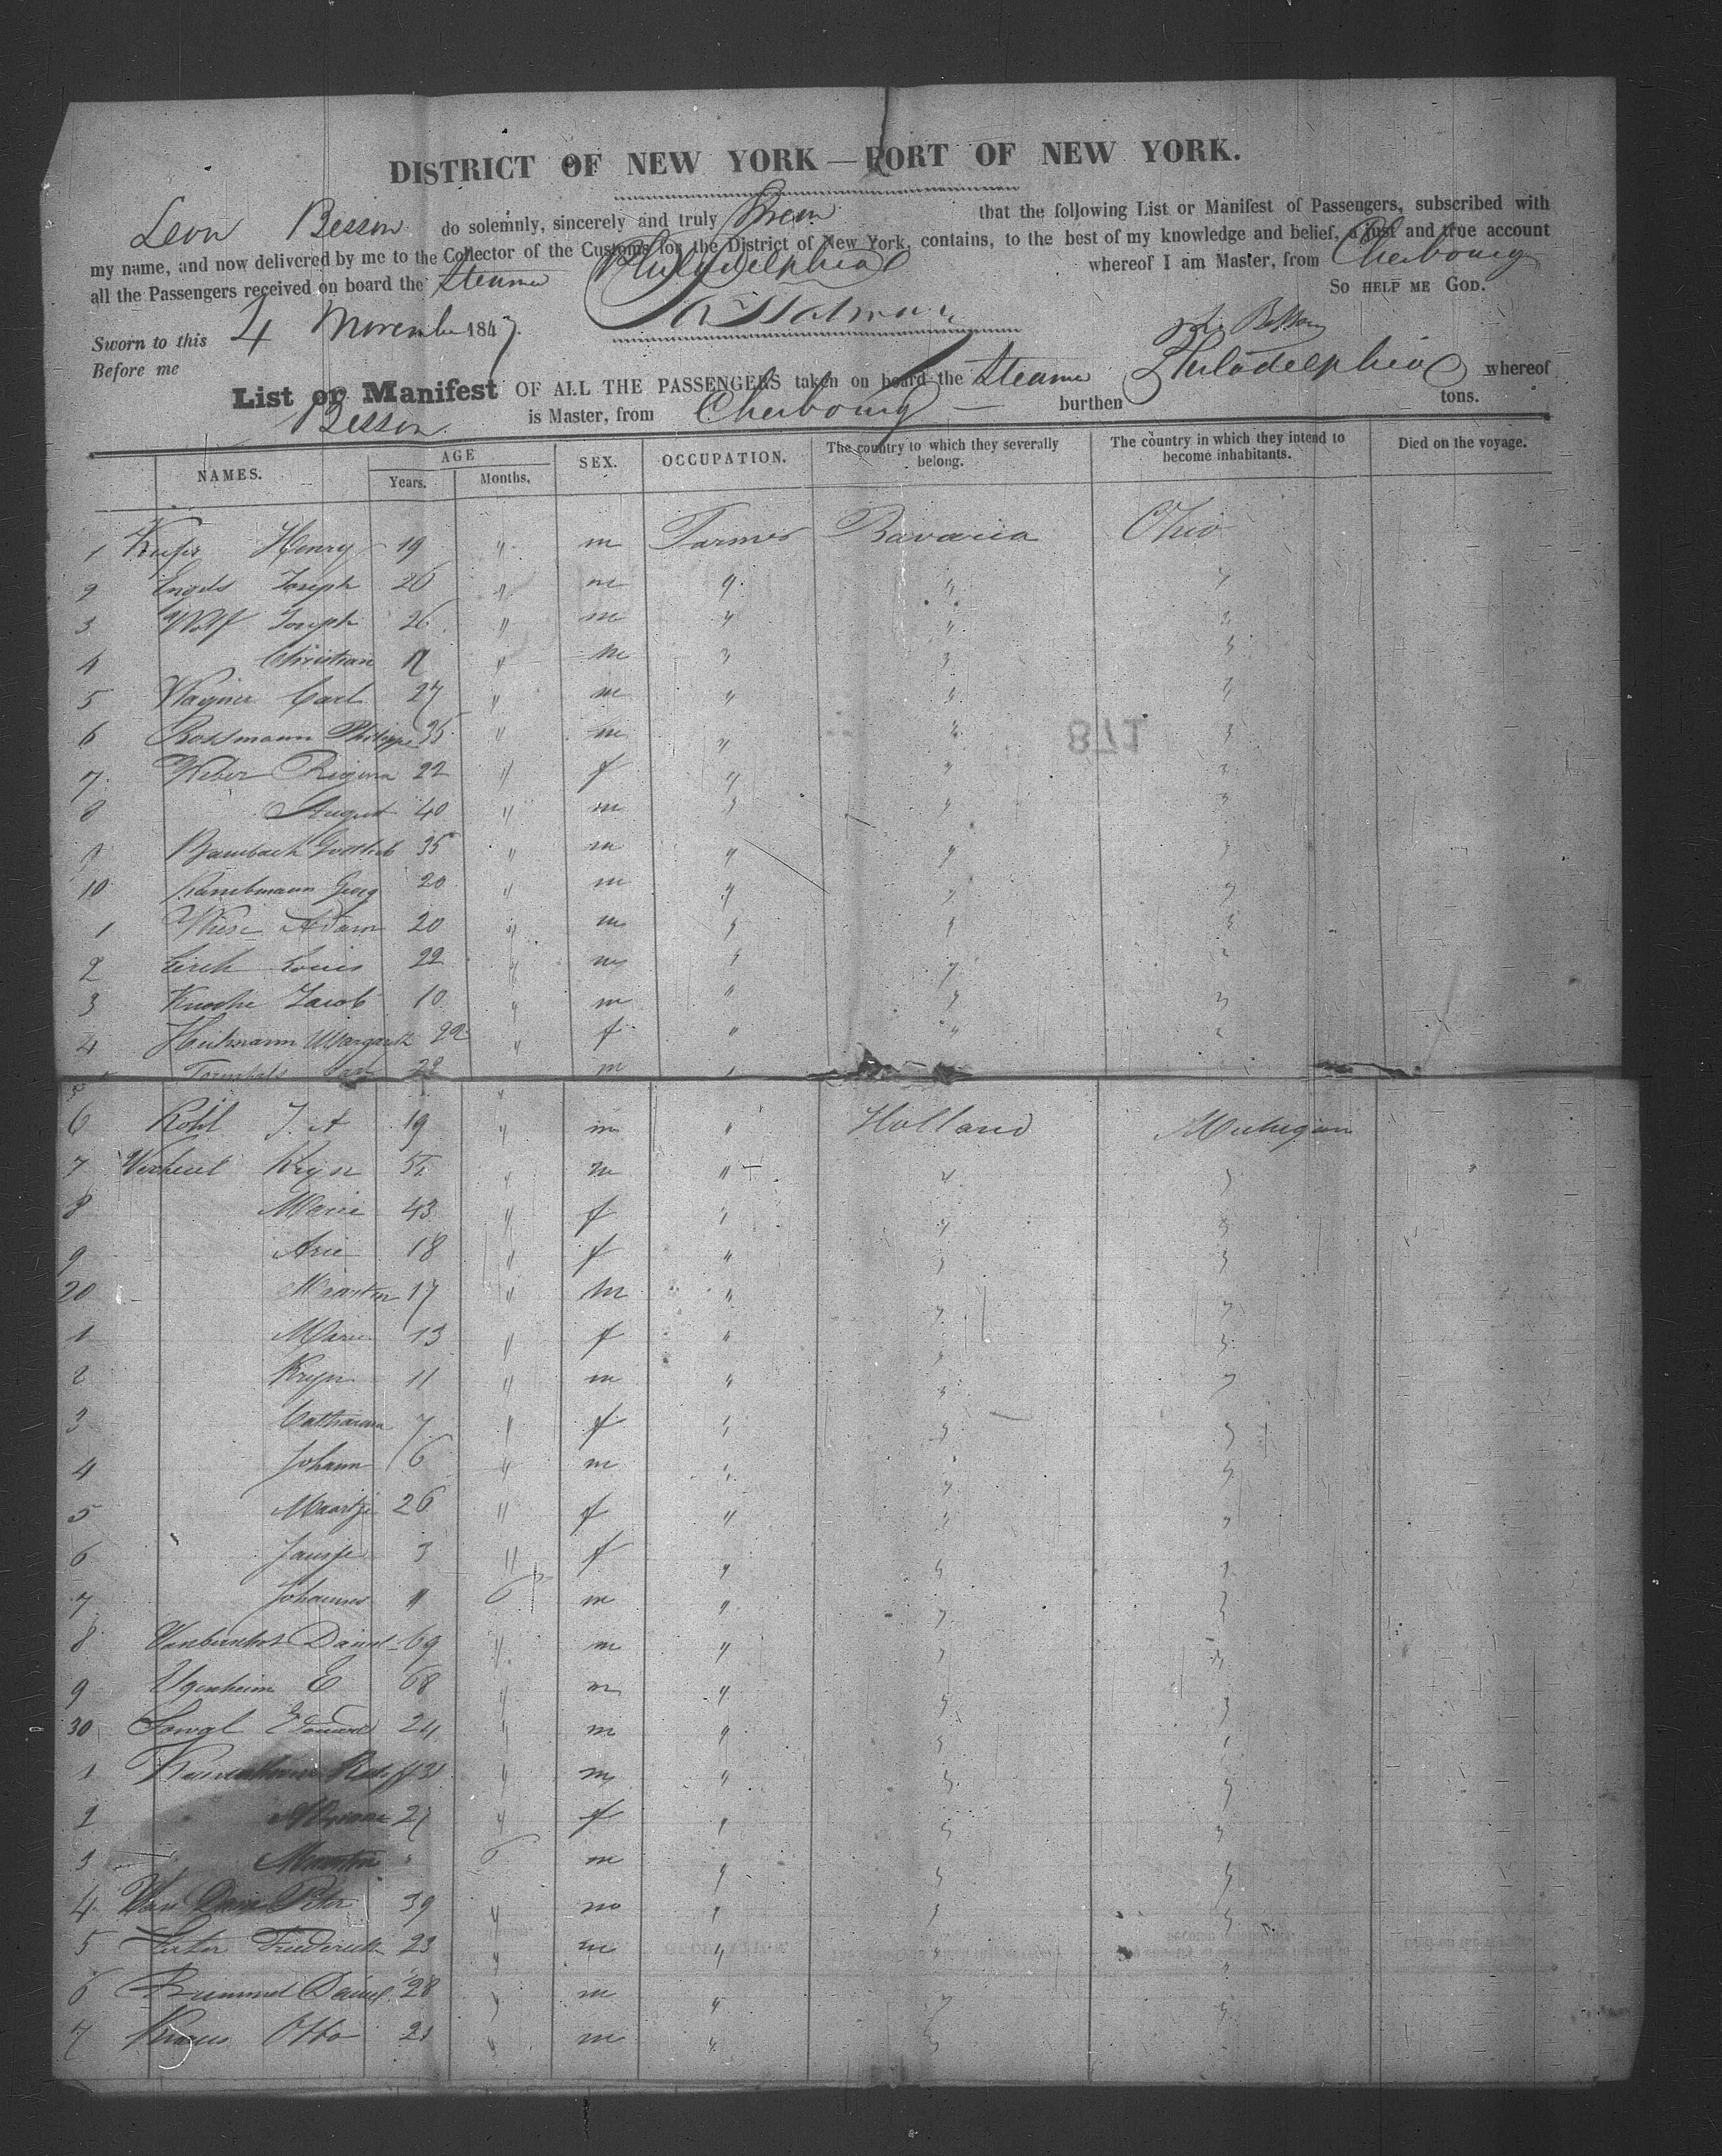 DISTRICT OF NEW YORK — PORT OF NEW YORK.
Leon Besson do solemnly, sincerely and truly Swear that the following List or Manifest of Passengers, subscribed with
my name, and now delivered by me to the Collector of the Customs for the District of New York, contains, to the best of my knowledge and belief, a just and true account
all the Passengers received on board the Steamer Philadelphia whereof I am Master, from Cherbourg
So help me God.
Sworn to this 4 November 1847.
Before me
List or Manifest OF ALL THE PASSENGERS taken on board the Steamer Philadelphia whereof
Besson is Master, from Cherbourg — burthen tons.
NAMES. AGE Years. Months. SEX. OCCUPATION. The country to which they severally belong. The country in which they intend to become inhabitants. Died on the voyage.
1 Henry 19 " m Farmer Bavaria Ohio
2 Engels Joseph 26 " m " " "
3 Wolf Joseph 26 " m " " "
4 Christian 17 " m " " "
5 Wagner Carl 27 " m " " "
6 Rossmann Philippe 35 " m " " "
871
7 Weber Regina 22 " f " " "
8 August 40 " m " " "
9 Bambach Gottlieb 35 " m " " "
10 Georg 20 " m " " "
1 Wiese Adam 20 " m " " "
2 Louis 22 " m " " "
3 Jacob 10 " m " " "
4 Heilmann Margareth 22 " f " "
5 Carl 28 m "
6 Kohl J. A 19 " m " Holland Michigan
7 Verheul Kryn 52 " m " " "
8 Marie 43 " f " " "
9 Arie 18 " f " " "
20 Maarten 17 " m " " "
1 Marie 13 " f " " "
2 Kryn 11 " m " " "
3 Catharina 7 " f " " "
4 Johann 6 " m " " "
5 Maartje 26 " f " " "
6 Jansje 3 " f " " "
7 Johannes " 6 m " " "
8 Daniel 69 " m " " "
9 E 68 " m " " "
30 Edouard 24 " m " " "
1 31 " m " " "
2 27 " f " " "
3 Maarten " 6 m " " "
4 Van Dam Peter 39 " m " " "
5 Frederick 23 " m " " "
6 Daniel 28 " m " " "
7 Otto 21 " m " "